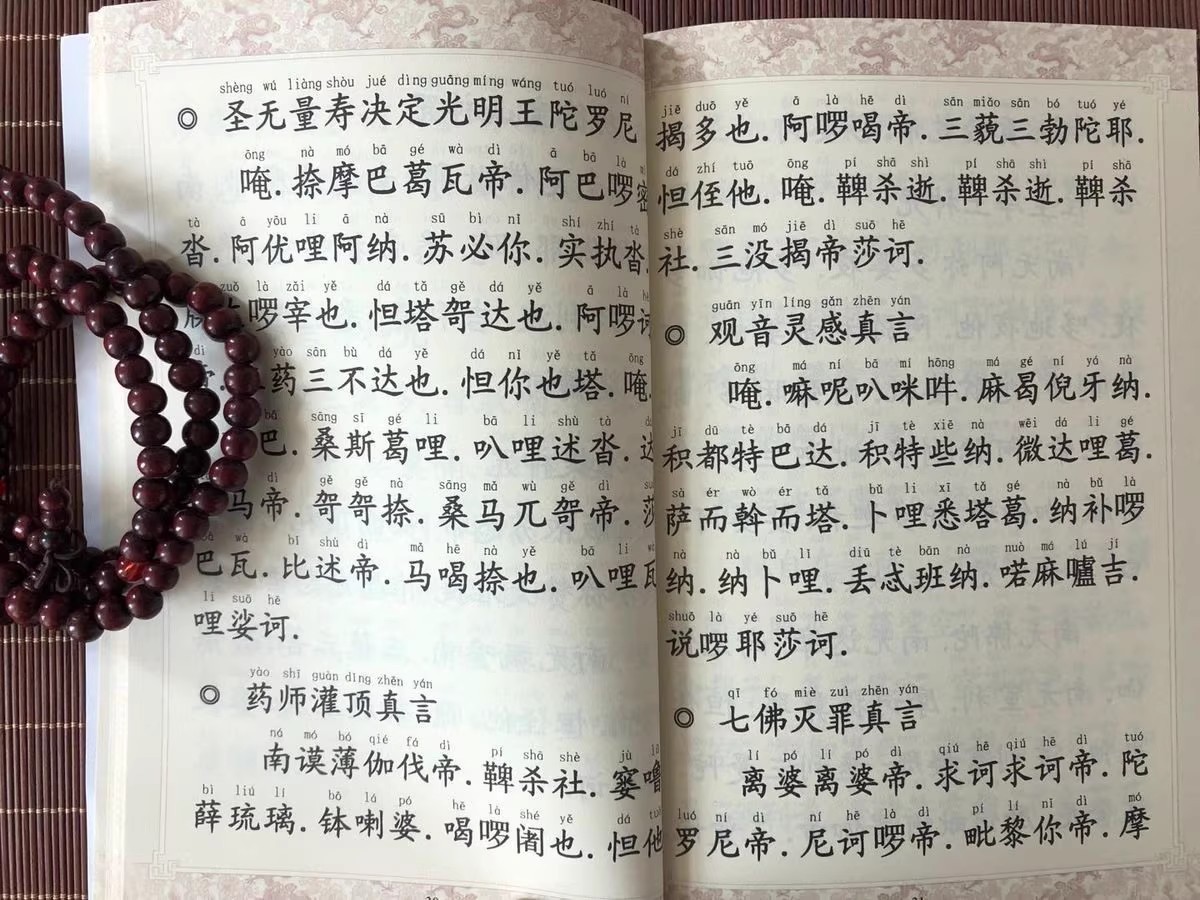 shèng wú liàng shòu jué dìng guāng míng wáng tuó luó ní
◎ 圣无量寿决定光明王陀罗尼
ōng nà mó bā gé wà dì ā bā là mì
唵.捺摩巴葛瓦帝.阿巴啰密
tà ā yōu li ā nà sū bì nǐ shí zhí tà
沓.阿优哩阿纳.苏必你.实执沓.
zuǒ là zǎi yě dá tǎ gě dá yě ā là hē
啰宰也.怛塔哿达也.阿啰诃
dì yào sān bù dá yě dá nǐ yě tǎ ōng
药三不达也.怛你也塔.唵.
bā sāng sī gé li bā li shù tà dá
巴.桑斯葛哩.叭哩述沓.达
dì gě gě nà sāng mǎ wù gě dì suō
马帝.哿哿捺.桑马兀哿帝.莎
bā wà bǐ shù dì mǎ hē nà yě bā li wǎ
巴瓦.比述帝.马喝捺也.叭哩瓦
li suō hē
哩娑诃.
yào shī guàn dǐng zhēn yán
◎ 药师灌顶真言
ná mó bó qié fá dì pí shā shè jù lū
南谟薄伽伐帝.鞞杀社.窭噜
bì liú lí bō lá pó hē là shé yě dá tuō
薛琉璃.钵喇婆.喝啰阇也.怛他
jiē duō yě ā là hē dì sān miǎo sān bó tuó yé
揭多也.阿啰喝帝.三藐三勃陀耶.
dá zhí tuō ōng pí shā shì pí shā shì pí shā
怛侄他.唵.鞞杀逝.鞞杀逝.鞞杀
shè sān mó jiē dì suō hē
社.三没揭帝莎诃.
guān yīn líng gǎn zhēn yán
◎ 观音灵感真言
ōng má ní bā mí hōng má gé ní yá nà
唵.嘛呢叭咪吽.麻曷倪牙纳.
jī dū tè bā dá jī tè xiē nà wēi dá li gé
积都特巴达.积特些纳.微达哩葛.
sà ér wò ér tǎ bǔ li xī tǎ gé nà bǔ là
萨而斡而塔.卜哩悉塔葛.纳补啰
nà nà bǔ lī diū tè bān nà nuò má lú jí
纳.纳卜哩.丢忒班纳.喏麻嚧吉.
shuō là yé suō hē
说啰耶莎诃.
qī fó miè zuì zhēn yán
◎ 七佛灭罪真言
lí pó lí pó dì qiú hē qiú hē dì tuó
离婆离婆帝.求诃求诃帝.陀
luó ní dì ní hē là dì pí lí nǐ dì mó
罗尼帝.尼诃啰帝.毗黎你帝.摩